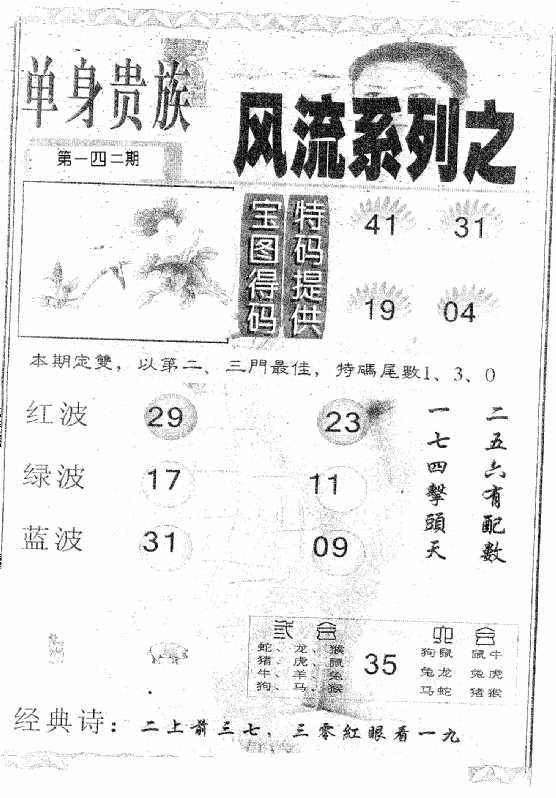 单身贵族
第一四二期
风流系列之
宝图得码
特码提供
41 31
19 04
本期定雙，以第二、三門最佳，特碼尾數1、3、0
红波 29 23
绿波 17 11
蓝波 31 09
二五六有配數
一七四擊頭天
弍合
蛇、龙、猴
猪、虎、鼠
牛、羊、兔
狗、马、猴
35
六合
狗鼠 鼠牛
兔龙 兔虎
马蛇 猪猴
经典诗：二上前三七，三零紅眼看一九